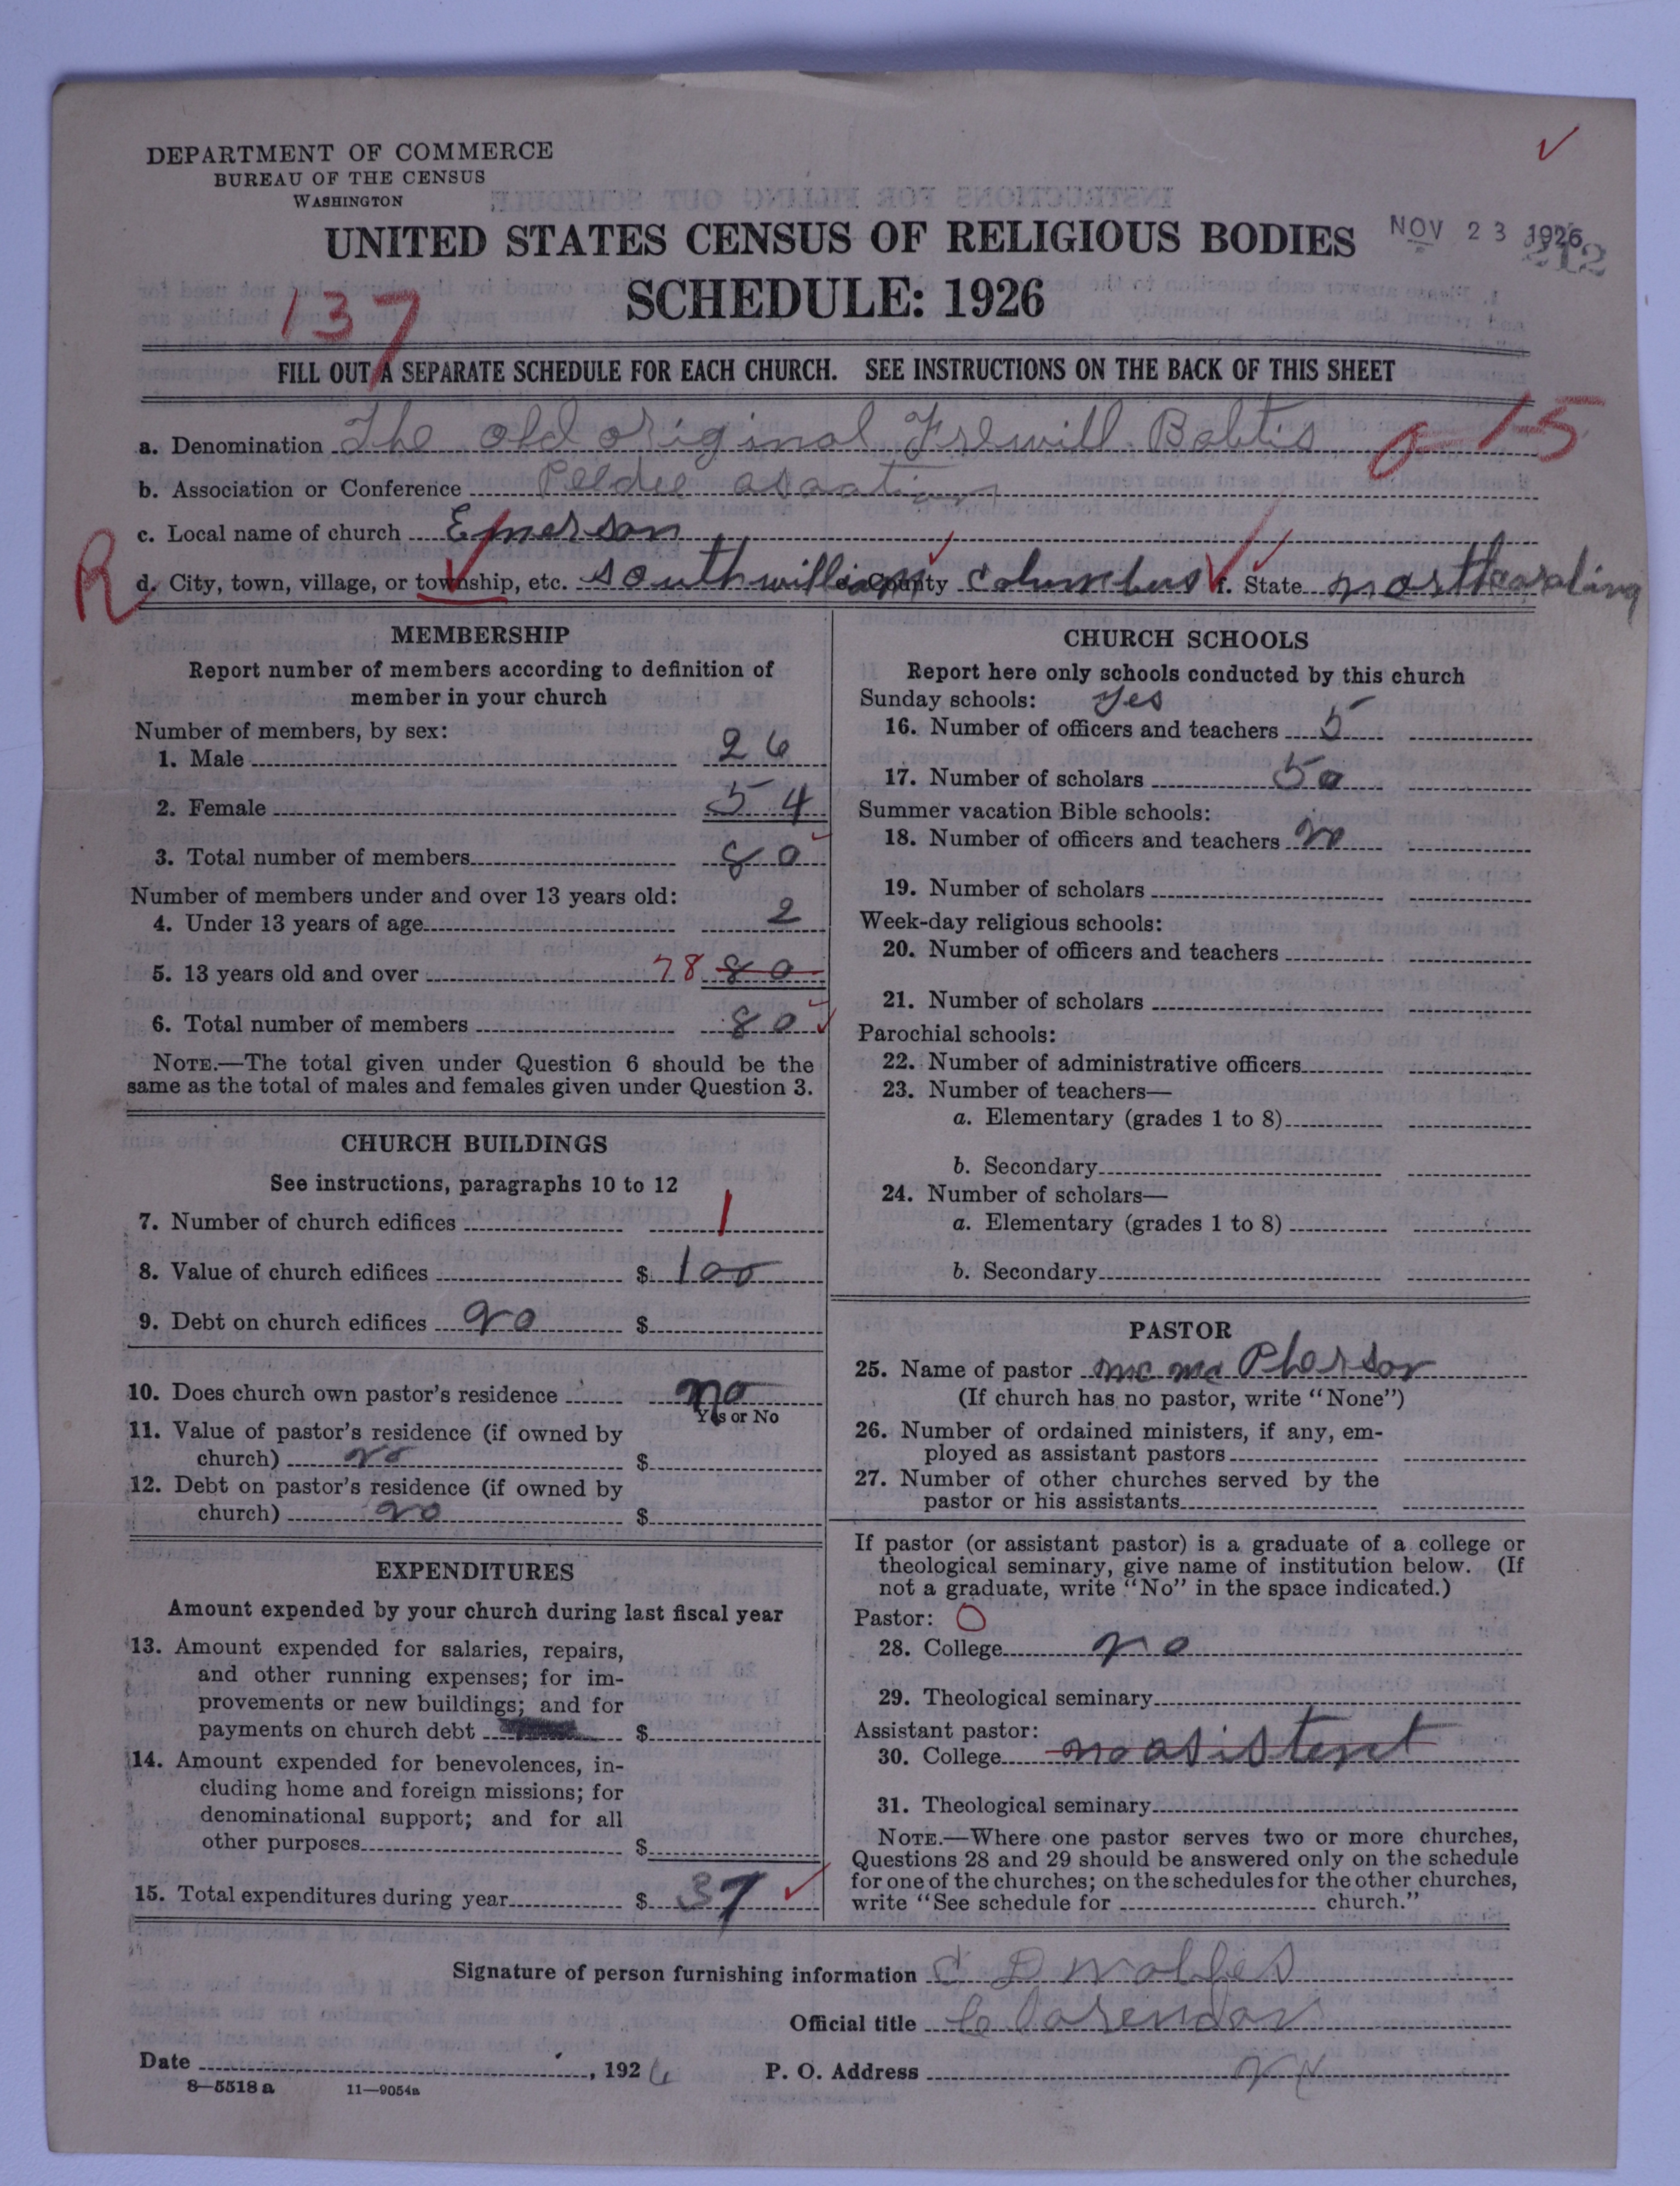 DEPARTMENT OF COMMERCE
BUREAU OF THE CENSUS
WASHINGTON
UNITED STATES CENSUS OF RELIGIOUS BODIES
NOV 23 1926
212
SCHEDULE: 1926
137
FILL OUT A SEPARATE SCHEDULE FOR EACH CHURCH. SEE INSTRUCTIONS ON THE BACK OF THIS SHEET
a. Denomination The old original Frewill Babtis
15
b. Association or Conference Peedee
c. Local name of church Emerson
R
d. City, town, village, or township, etc. Southwilliams e. County Columbus f. State north carolina
MEMBERSHIP
Report number of members according to definition of
member in your church
Number of members, by sex:
1. Male 26
2. Female 54
3. Total number of members 80
Number of members under and over 13 years old:
4. Under 13 years of age 2
5. 13 years old and over 78 80
6. Total number of members 80
NOTE.—The total given under Question 6 should be the
same as the total of males and females given under Question 3.
CHURCH BUILDINGS
See instructions, paragraphs 10 to 12
7. Number of church edifices 1
8. Value of church edifices $ 100
9. Debt on church edifices no $
10. Does church own pastor's residence no
Yes or No
11. Value of pastor's residence (if owned by
church) no $
12. Debt on pastor's residence (if owned by
church) no $
EXPENDITURES
Amount expended by your church during last fiscal year
13. Amount expended for salaries, repairs,
and other running expenses; for im-
provements or new buildings; and for
payments on church debt $
14. Amount expended for benevolences, in-
cluding home and foreign missions; for
denominational support; and for all
other purposes $
15. Total expenditures during year $ 37
CHURCH SCHOOLS
Report here only schools conducted by this church
Sunday schools: yes
16. Number of officers and teachers 5
17. Number of scholars 50
Summer vacation Bible schools:
18. Number of officers and teachers no
19. Number of scholars
Week-day religious schools:
20. Number of officers and teachers
21. Number of scholars
Parochial schools:
22. Number of administrative officers
23. Number of teachers—
a. Elementary (grades 1 to 8)
b. Secondary
24. Number of scholars—
a. Elementary (grades 1 to 8)
b. Secondary
PASTOR
25. Name of pastor mc Pherson
(If church has no pastor, write "None")
26. Number of ordained ministers, if any, em-
ployed as assistant pastors
27. Number of other churches served by the
pastor or his assistants
If pastor (or assistant pastor) is a graduate of a college or
theological seminary, give name of institution below. (If
not a graduate, write "No" in the space indicated.)
Pastor: O
28. College no
29. Theological seminary
Assistant pastor:
30. College no asistent
31. Theological seminary
NOTE.—Where one pastor serves two or more churches,
Questions 28 and 29 should be answered only on the schedule
for one of the churches; on the schedules for the other churches,
write "See schedule for church."
Signature of person furnishing information C D
Official title Clarendon
Date , 1926 P. O. Address
8—5518 a 11—9054a